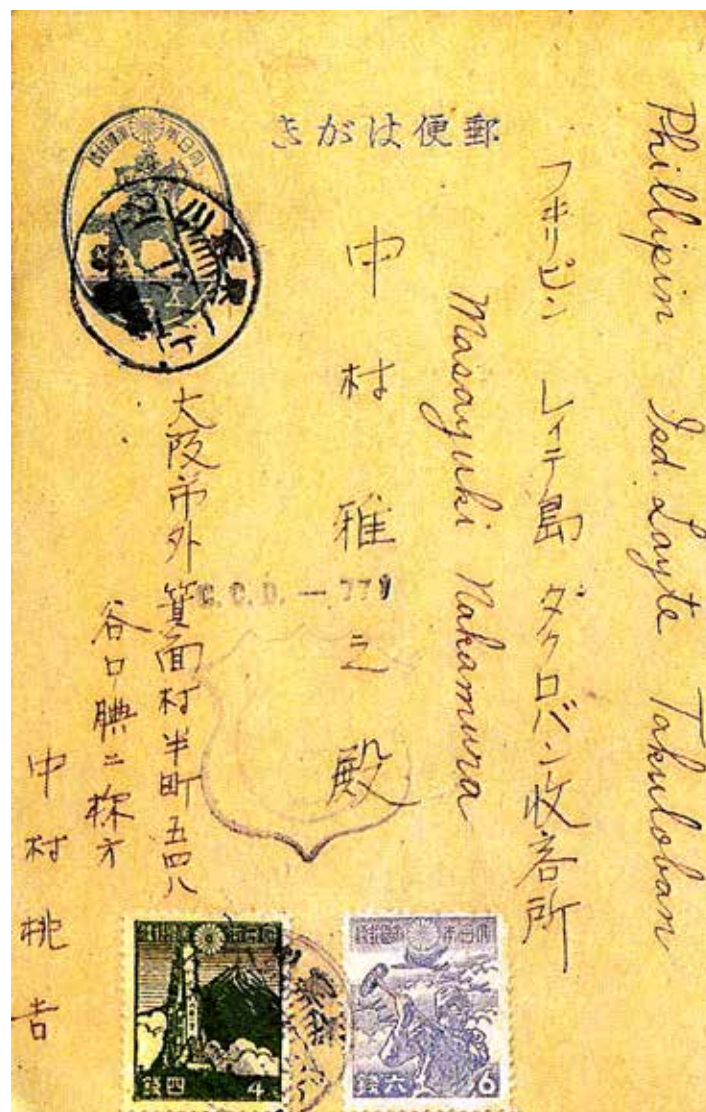 郵便はがき
Phillipin Isd. Layte Takuloban
フヰリピン レイテ島 タクロバン收容所
Masayuki Nakamura
中村雅之殿
C.C.D. — 779
大阪市外箕面村半町五四八
谷口 二様方
中村桃吉
四銭 4
六銭 6